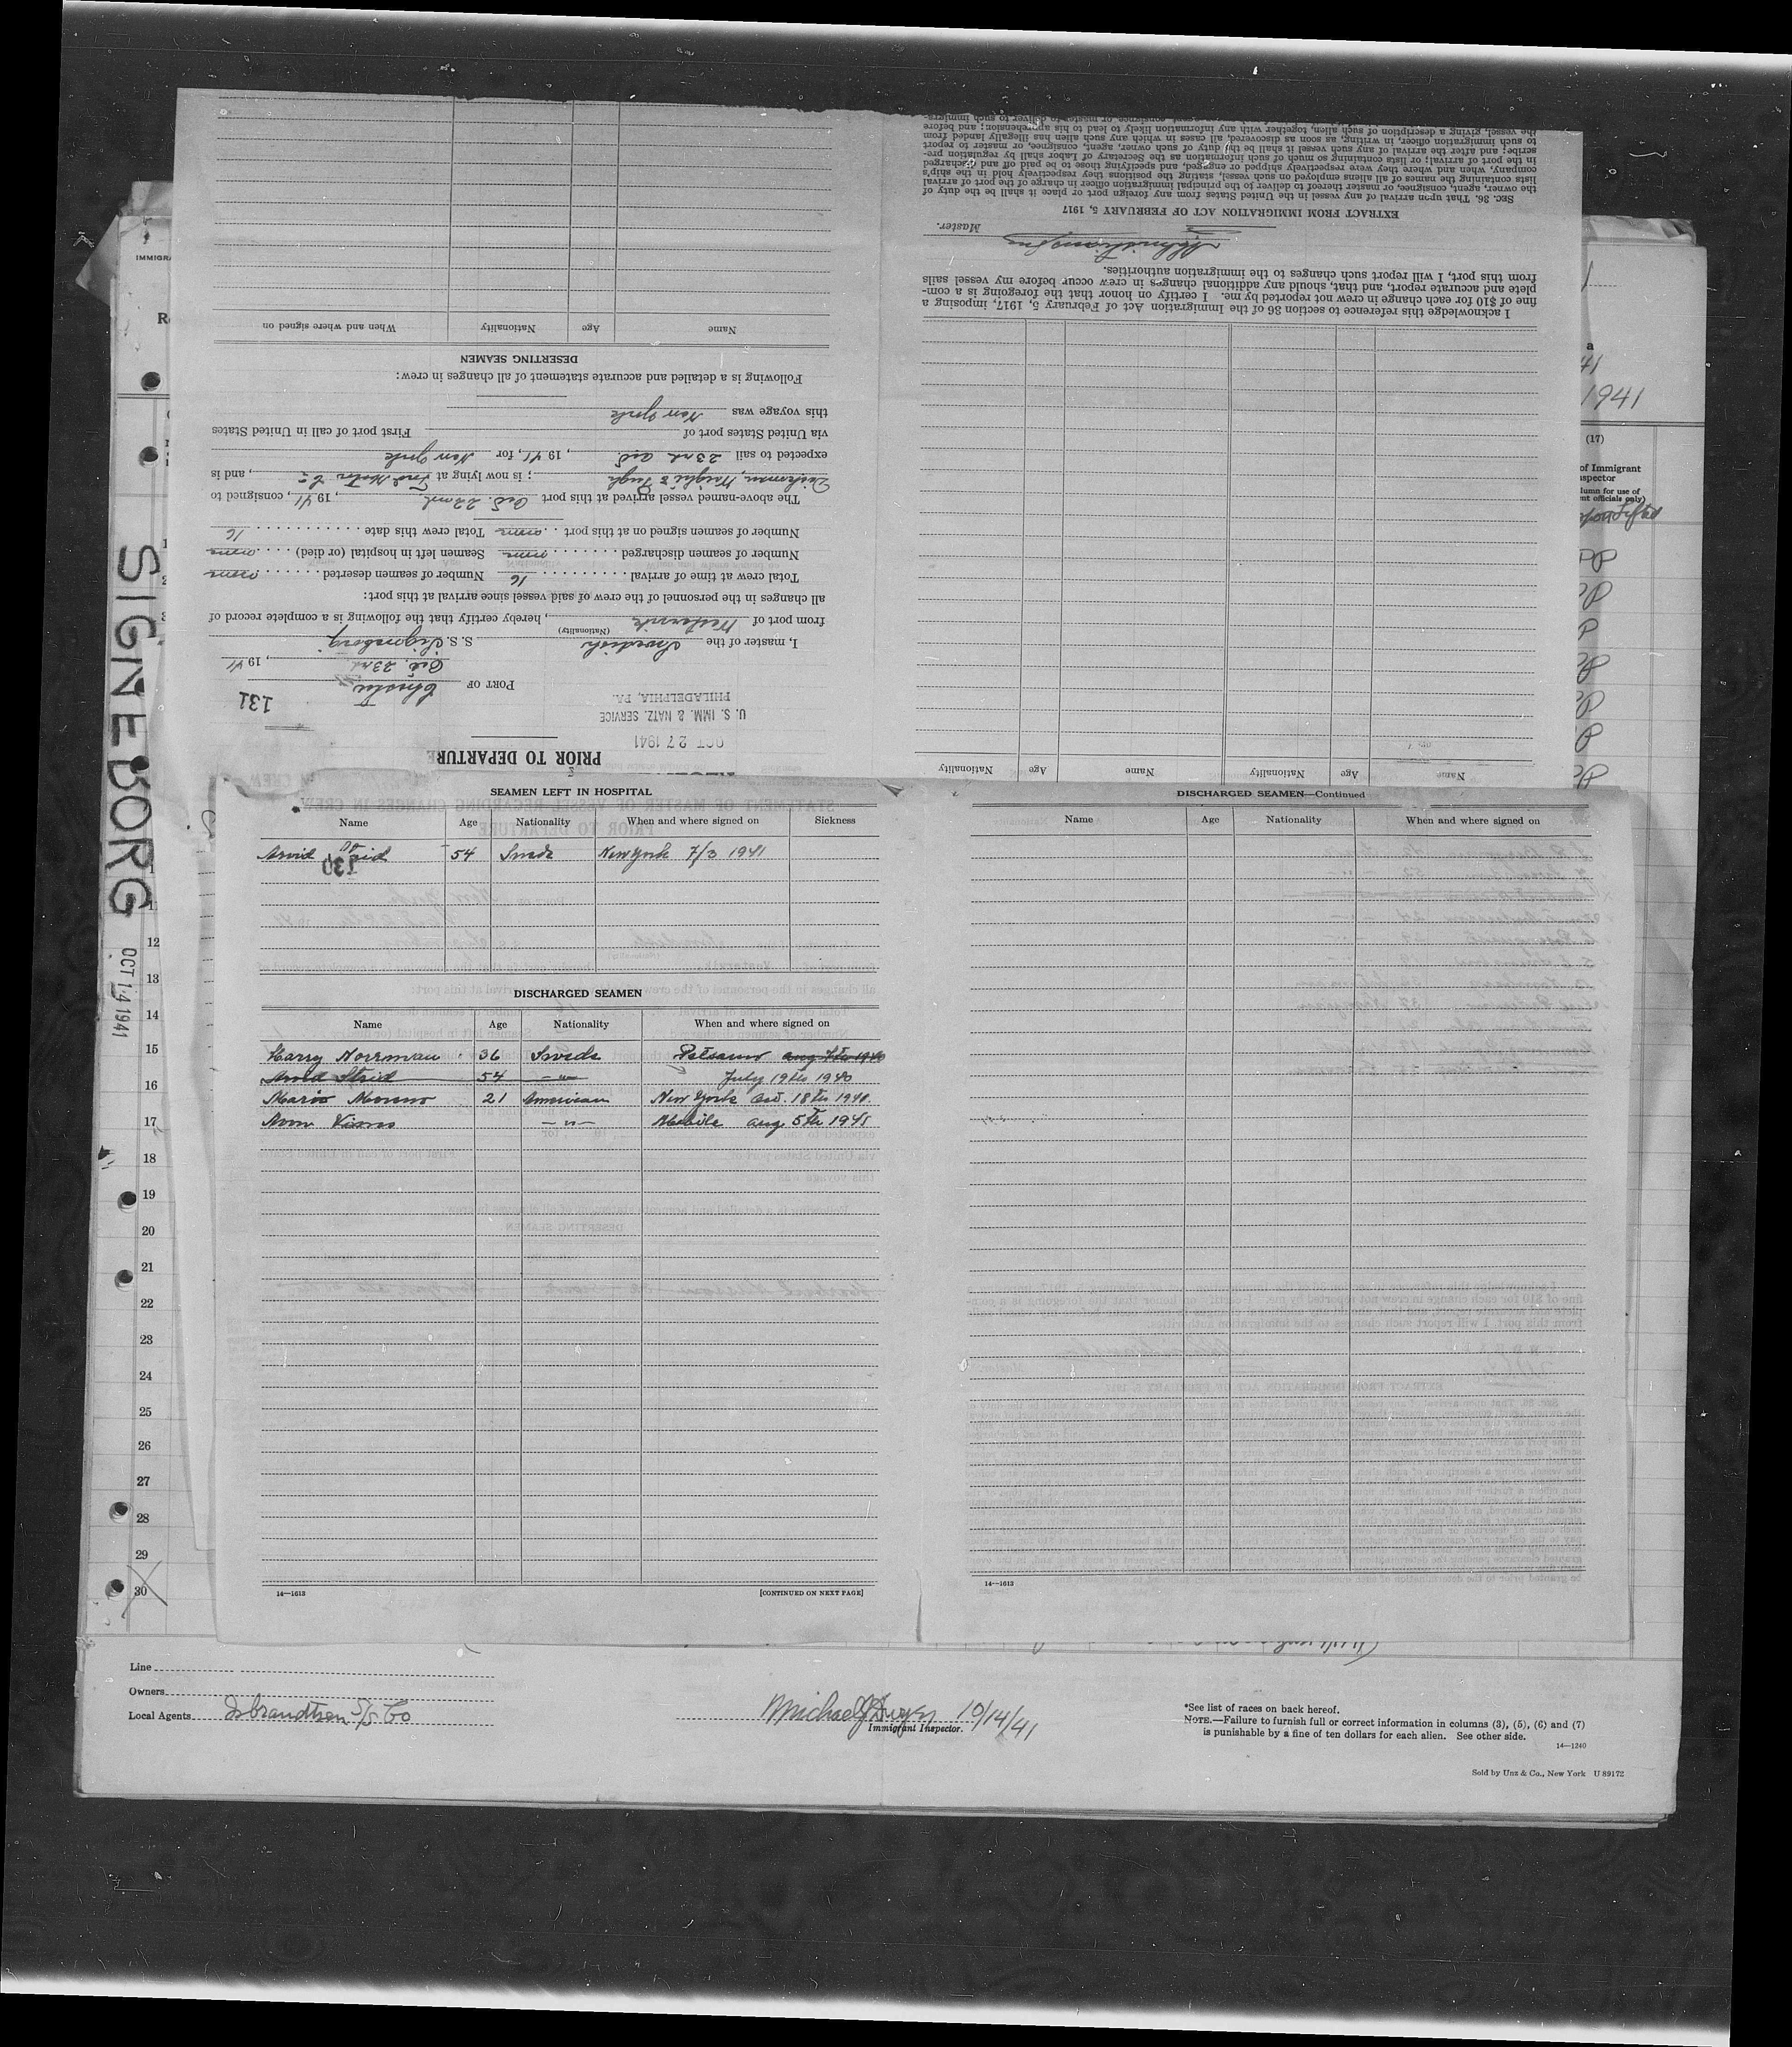 PRIOR TO DEPARTURE
OCT 27 1941
U. S. IMM. & NATZ. SERVICE
PHILADELPHIA, PA.
131
PORT OF Chester
Oct. 23rd, 1941
I, master of the Swedish S. S. Signeborg
(Nationality)
from port of Westervik, hereby certify that the following is a complete record of
all changes in the personnel of the crew of said vessel since arrival at this port:
Total crew at time of arrival 16 Number of seamen deserted none
Number of seamen discharged none Seamen left in hospital (or died) none
Number of seamen signed on at this port none Total crew this date 16
The above-named vessel arrived at this port Oct. 22nd, 1941, consigned to
Dickerman, Wright & Pugh; is now lying at Ford Motor Co, and is
expected to sail 23rd Oct, 1941, for New York
via United States port of First port of call in United States
this voyage was New York
Following is a detailed and accurate statement of all changes in crew:
DESERTING SEAMEN
Name Age Nationality When and where signed on
Name Age Nationality Name Age Nationality
I acknowledge this reference to section 36 of the Immigration Act of February 5, 1917, imposing a
fine of $10 for each change in crew not reported by me. I certify on honor that the foregoing is a com-
plete and accurate report, and that, should any additional changes in crew occur before my vessel sails
from this port, I will report such changes to the immigration authorities.
Master.
EXTRACT FROM IMMIGRATION ACT OF FEBRUARY 5, 1917
SEC. 36. That upon arrival of any vessel in the United States from any foreign port or place it shall be the duty of
the owner, agent, consignee, or master thereof to deliver to the principal immigration officer in charge of the port of arrival
lists containing the names of all aliens employed on such vessel, stating the positions they respectively hold in the ship's
company, when and where they were respectively shipped or engaged, and specifying those to be paid off and discharged
in the port of arrival; or lists containing so much of such information as the Secretary of Labor shall by regulation pre-
scribe; and after the arrival of any such vessel it shall be the duty of such owner, agent, consignee, or master to report
to such immigration officer, in writing, as soon as discovered, all cases in which any such alien has illegally landed from
the vessel, giving a description of such alien, together with any information likely to lead to his apprehension; and before
SIGNEBORG
OCT 14 1941
IMMIGRA
a
41
1941
(17)
of Immigrant
Inspector
SEAMEN LEFT IN HOSPITAL
Name Age Nationality When and where signed on Sickness
Arvid 54 Swede New York 7/3 1941
130
DISCHARGED SEAMEN
Name Age Nationality When and where signed on
Harry Norrman 36 Swede Petsamo Aug 7th 1940
Arvid Strid 54 -"- July 19th 1940
Mario Moreno 21 American New York Oct. 18th 1940.
-"- Mobile Aug 5th 1941
14—1613 [CONTINUED ON NEXT PAGE]
DISCHARGED SEAMEN—Continued
Name Age Nationality When and where signed on
14—1613
12
13
14
15
16
17
18
19
20
21
22
23
24
25
26
27
28
29
30
Line
Owners
Local Agents Isbrandtsen S/S Co
Michael J Dwyer 10/14/41
Immigrant Inspector.
*See list of races on back hereof.
NOTE.—Failure to furnish full or correct information in columns (3), (5), (6) and (7)
is punishable by a fine of ten dollars for each alien. See other side.
14—1240
Sold by Unz & Co., New York U 89172